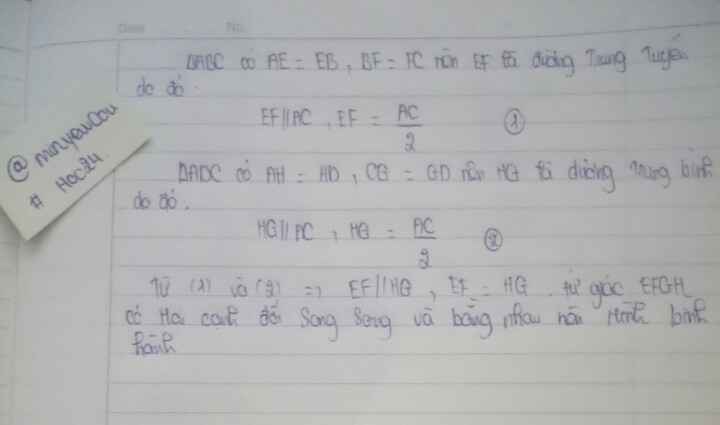 Date No.
ΔABC có AE = EB, BF = FC nên EF là đường Trung Tuyến
do đó.
EF//AC, EF = AC/2 (1)
ΔADC có AH = HD, CG = GD nên HG là đường trung bình
do đó.
HG//AC, HG = AC/2 (2)
Từ (1) và (2) => EF//HG, EF = HG. tứ giác EFGH
có Hai cạnh đối Song Song và bằng nhau nên Hình bình
hành
@
# Hoc24